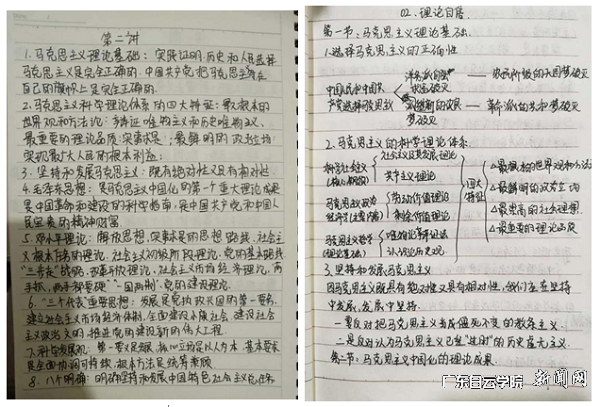 第二讲
1.马克思主义理论基础：实践证明，历史和人民选择
马克思主义是完全正确的，中国共产党把马克思主义写在
自己的旗帜上是完全正确的.
2.马克思主义科学理论体系的四大特征：最根本的
世界观和方法论：辩证唯物主义和历史唯物主义.
最重要的理论品质：实事求是；最鲜明的政治立场：
实现最广大人民的根本利益；
3.坚持和发展马克思主义：既有绝对性又具有相对性
4.毛泽东思想：是马克思主义中国化的第一个重大理论成果
是中国革命和建设的科学指南，是中国共产党和中国人
民宝贵的精神财富.
5.邓小平理论：解放思想，实事求是的思想路线，社会主
义根本任务的理论，社会主义初级阶段理论，党的基本路线
"三步走"战略，改革开放理论，社会主义市场经济理论，两手
抓，两手都要硬，"一国两制"，党的建设理论.
6."三个代表"重要思想：发展是党执政兴国的第一要务，
建立社会主义市场经济体制，全面建设小康社会，建设社会
主义政治文明，推进党的建设新的伟大工程.
7.科学发展观：第一要义是发展，核心立场是以人为本，基本要求
是全面协调可持续，根本方法是统筹兼顾.
8.八个明确：明确坚持和发展中国特色社会主义，总任务
02.理论自信.
第一节：马克思主义理论基础.
1.选择马克思主义的正确性
中国人民和中国共
产党选择马克思主义
农民阶级的天国梦破灭
革命派的共和梦破灭
梦破灭
2.马克思主义的科学理论体系.
科学社会主义
社会主义及其发展理论
共产主义理论
马克思主义政治
劳动价值理论
剩余价值理论
马克思主义哲学
唯物论辩证法
认识论历史观
四大
特征
△最根本的世界观和方法论
△最鲜明的政治立场
△最崇高的社会理想
△最重要的理论品质
3.坚持和发展马克思主义
因马克思主义既具有绝对性又具有相对性，我们要在坚持
中发展，发展中坚持.
一要反对把马克思主义当成僵死不变的教条主义.
二是反对认为马克思主义已经"过时"的历史虚无主义.
第二节：马克思主义中国化的理论成果.
广东白云学院 新闻网